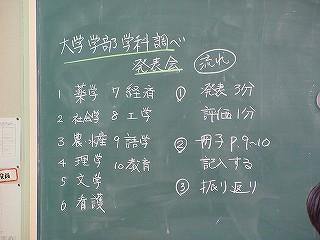 大学学部学科調べ
発表会
流れ
1 薬学
2 社会学
3 農・水産
4 理学
5 文学
6 看護
7 経済
8 工学
9 語学
10 教育
① 発表 3分
評価 1分
② 冊子 P.9~10
記入する
③ 振り返り